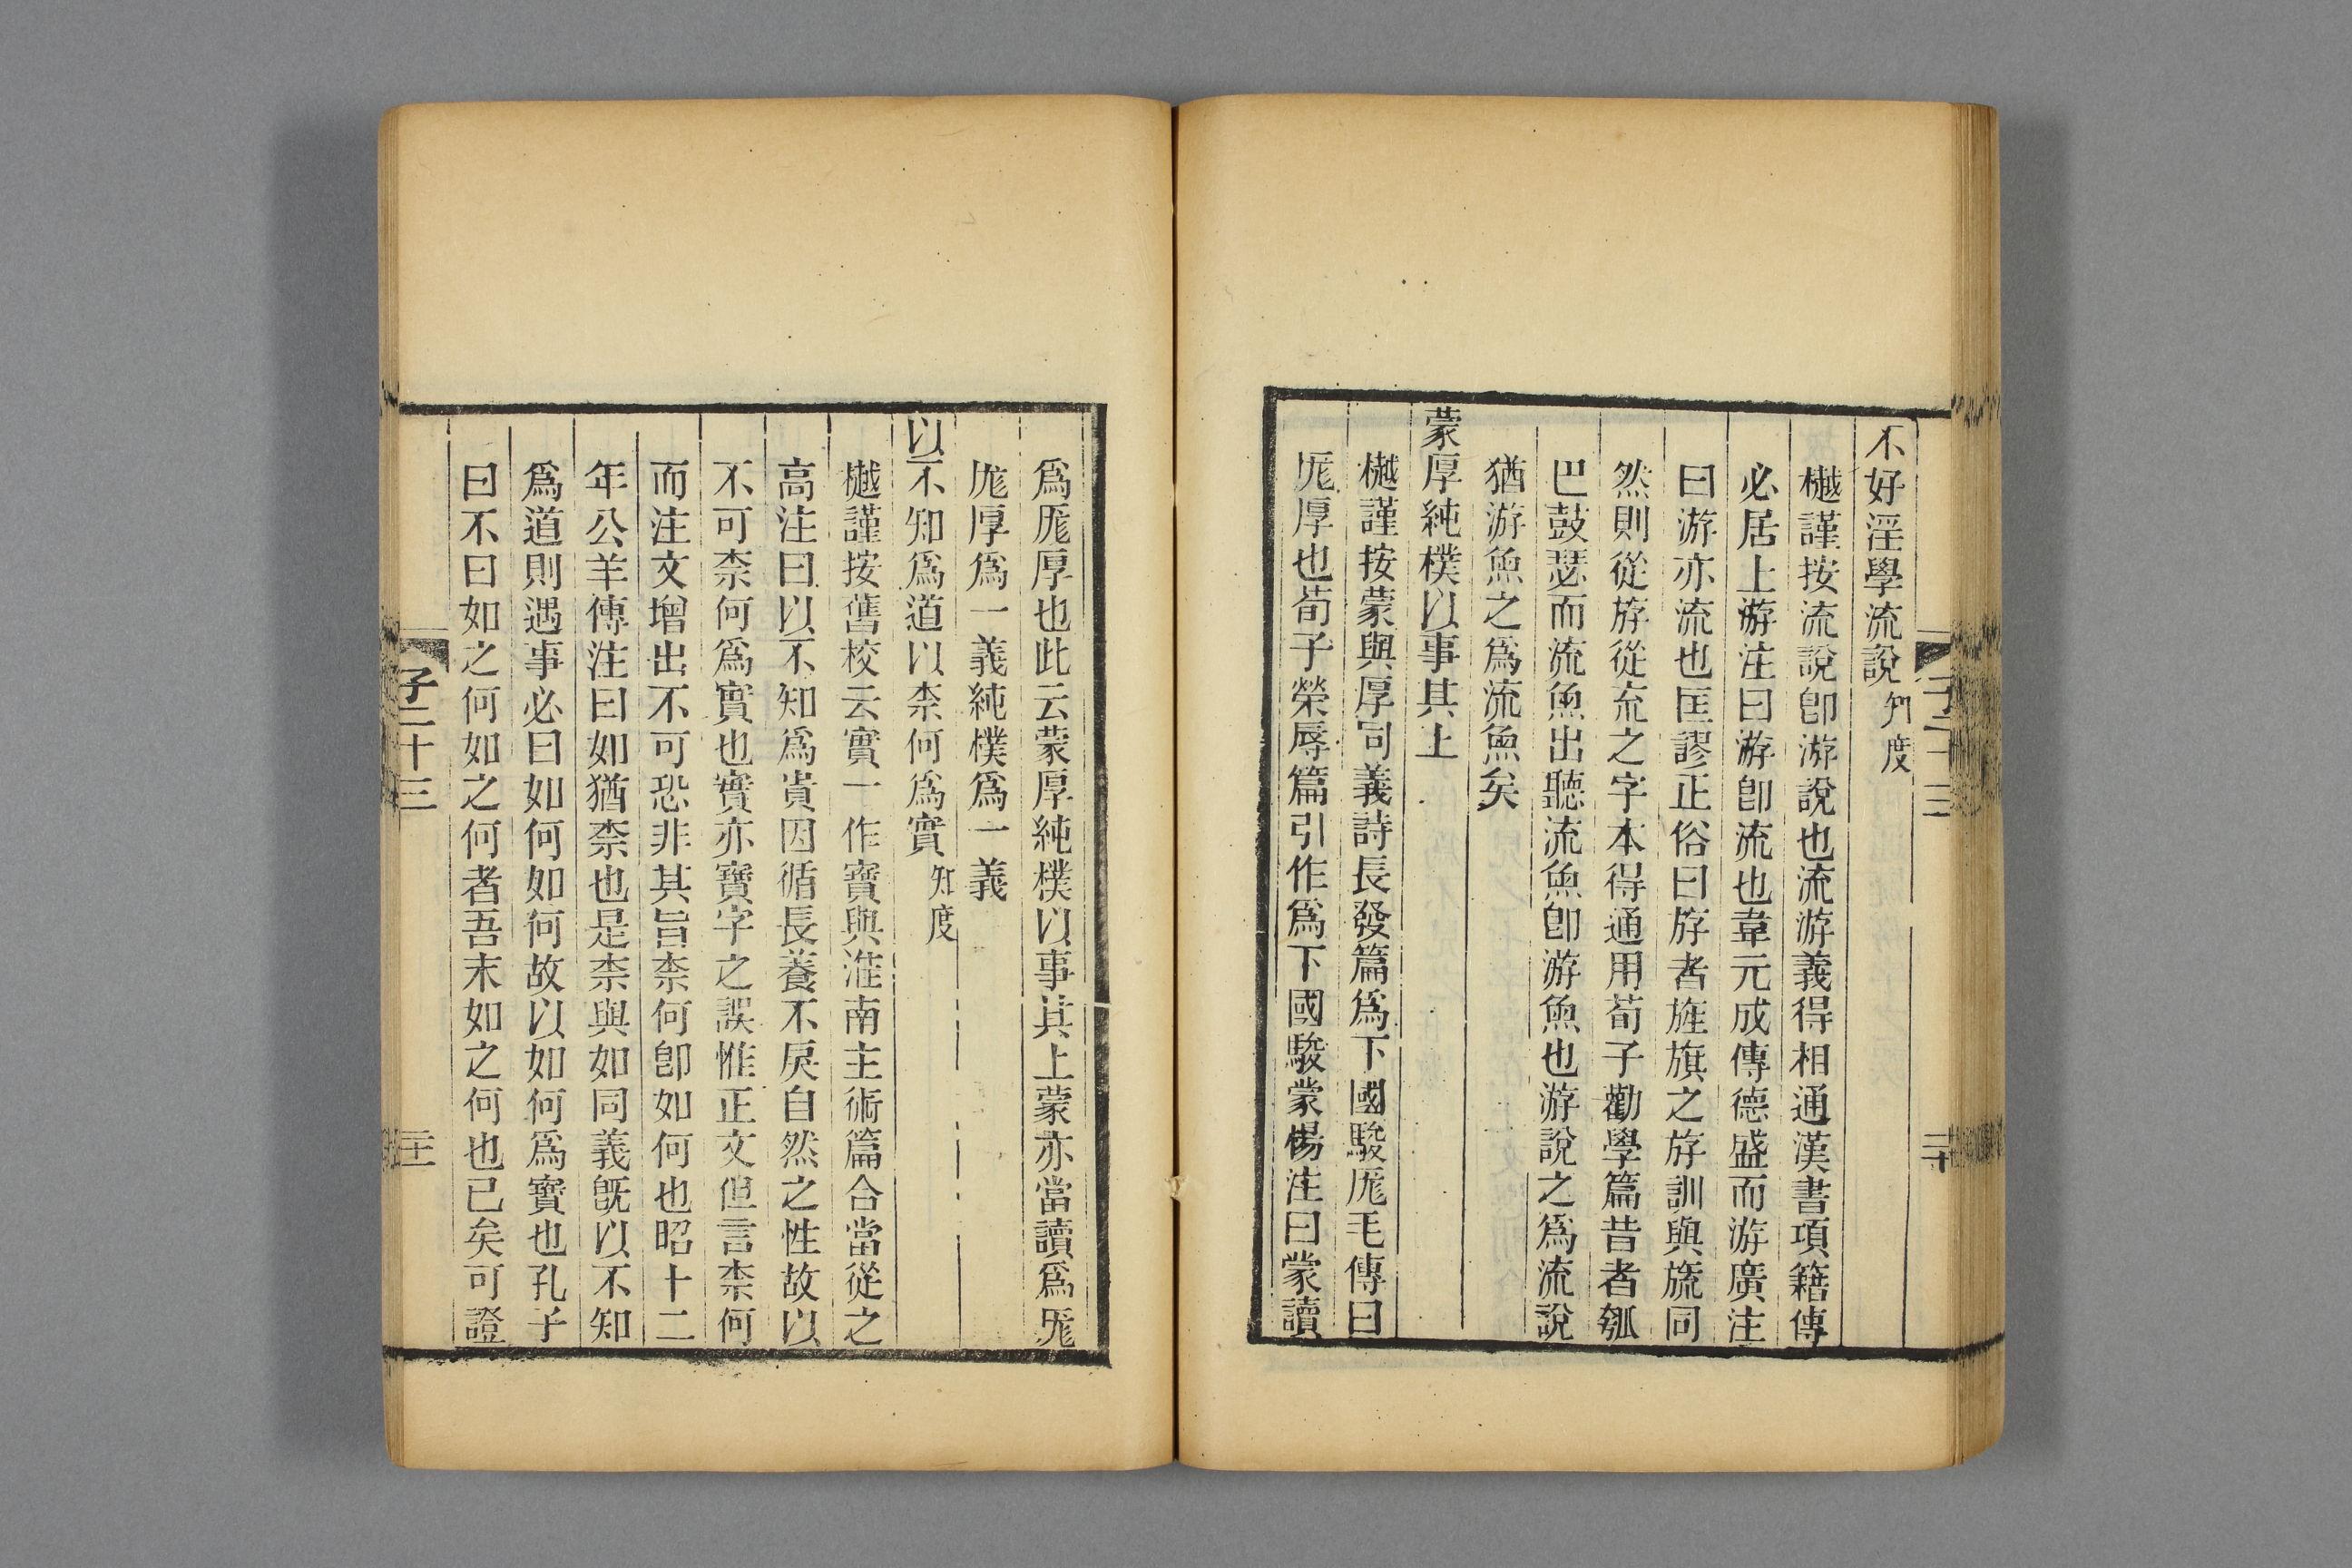 不好淫學流說知度
樾謹按流說卽游說也流游義得相通漢書項籍傳
必居上游注曰游卽流也韋元成傳德盛而游廣注
曰游亦流也匡謬正俗曰斿者旌旗之斿訓與旒同
然則從斿從㐬之字本得通用荀子勸學篇昔者瓠
巴鼓瑟而流魚出聽流魚卽游魚也游說之爲流說
猶游魚之爲流魚矣
蒙厚純樸以事其上
樾謹按蒙與厚同義詩長發篇爲下國駿厖毛傳曰
厖厚也荀子榮辱篇引作爲下國駿蒙楊注曰蒙讀
爲厖厚也此云蒙厚純樸以事其上蒙亦當讀爲厖
厖厚爲一義純樸爲一義
以不知爲道以柰何爲實知度
樾謹按舊校云實一作寶與淮南主術篇合當從之
高注曰以不知爲貴因循長養不戾自然之性故以
不可柰何爲實也實亦寶字之誤惟正文但言柰何
而注文增出不可恐非其旨柰何卽如何也昭十二
年公羊傳注曰如猶柰也是柰與如同義旣以不知
爲道則遇事必曰如何如何故以如何爲寶也孔子
曰不曰如之何如之何者吾末如之何也已矣可證
子二十三